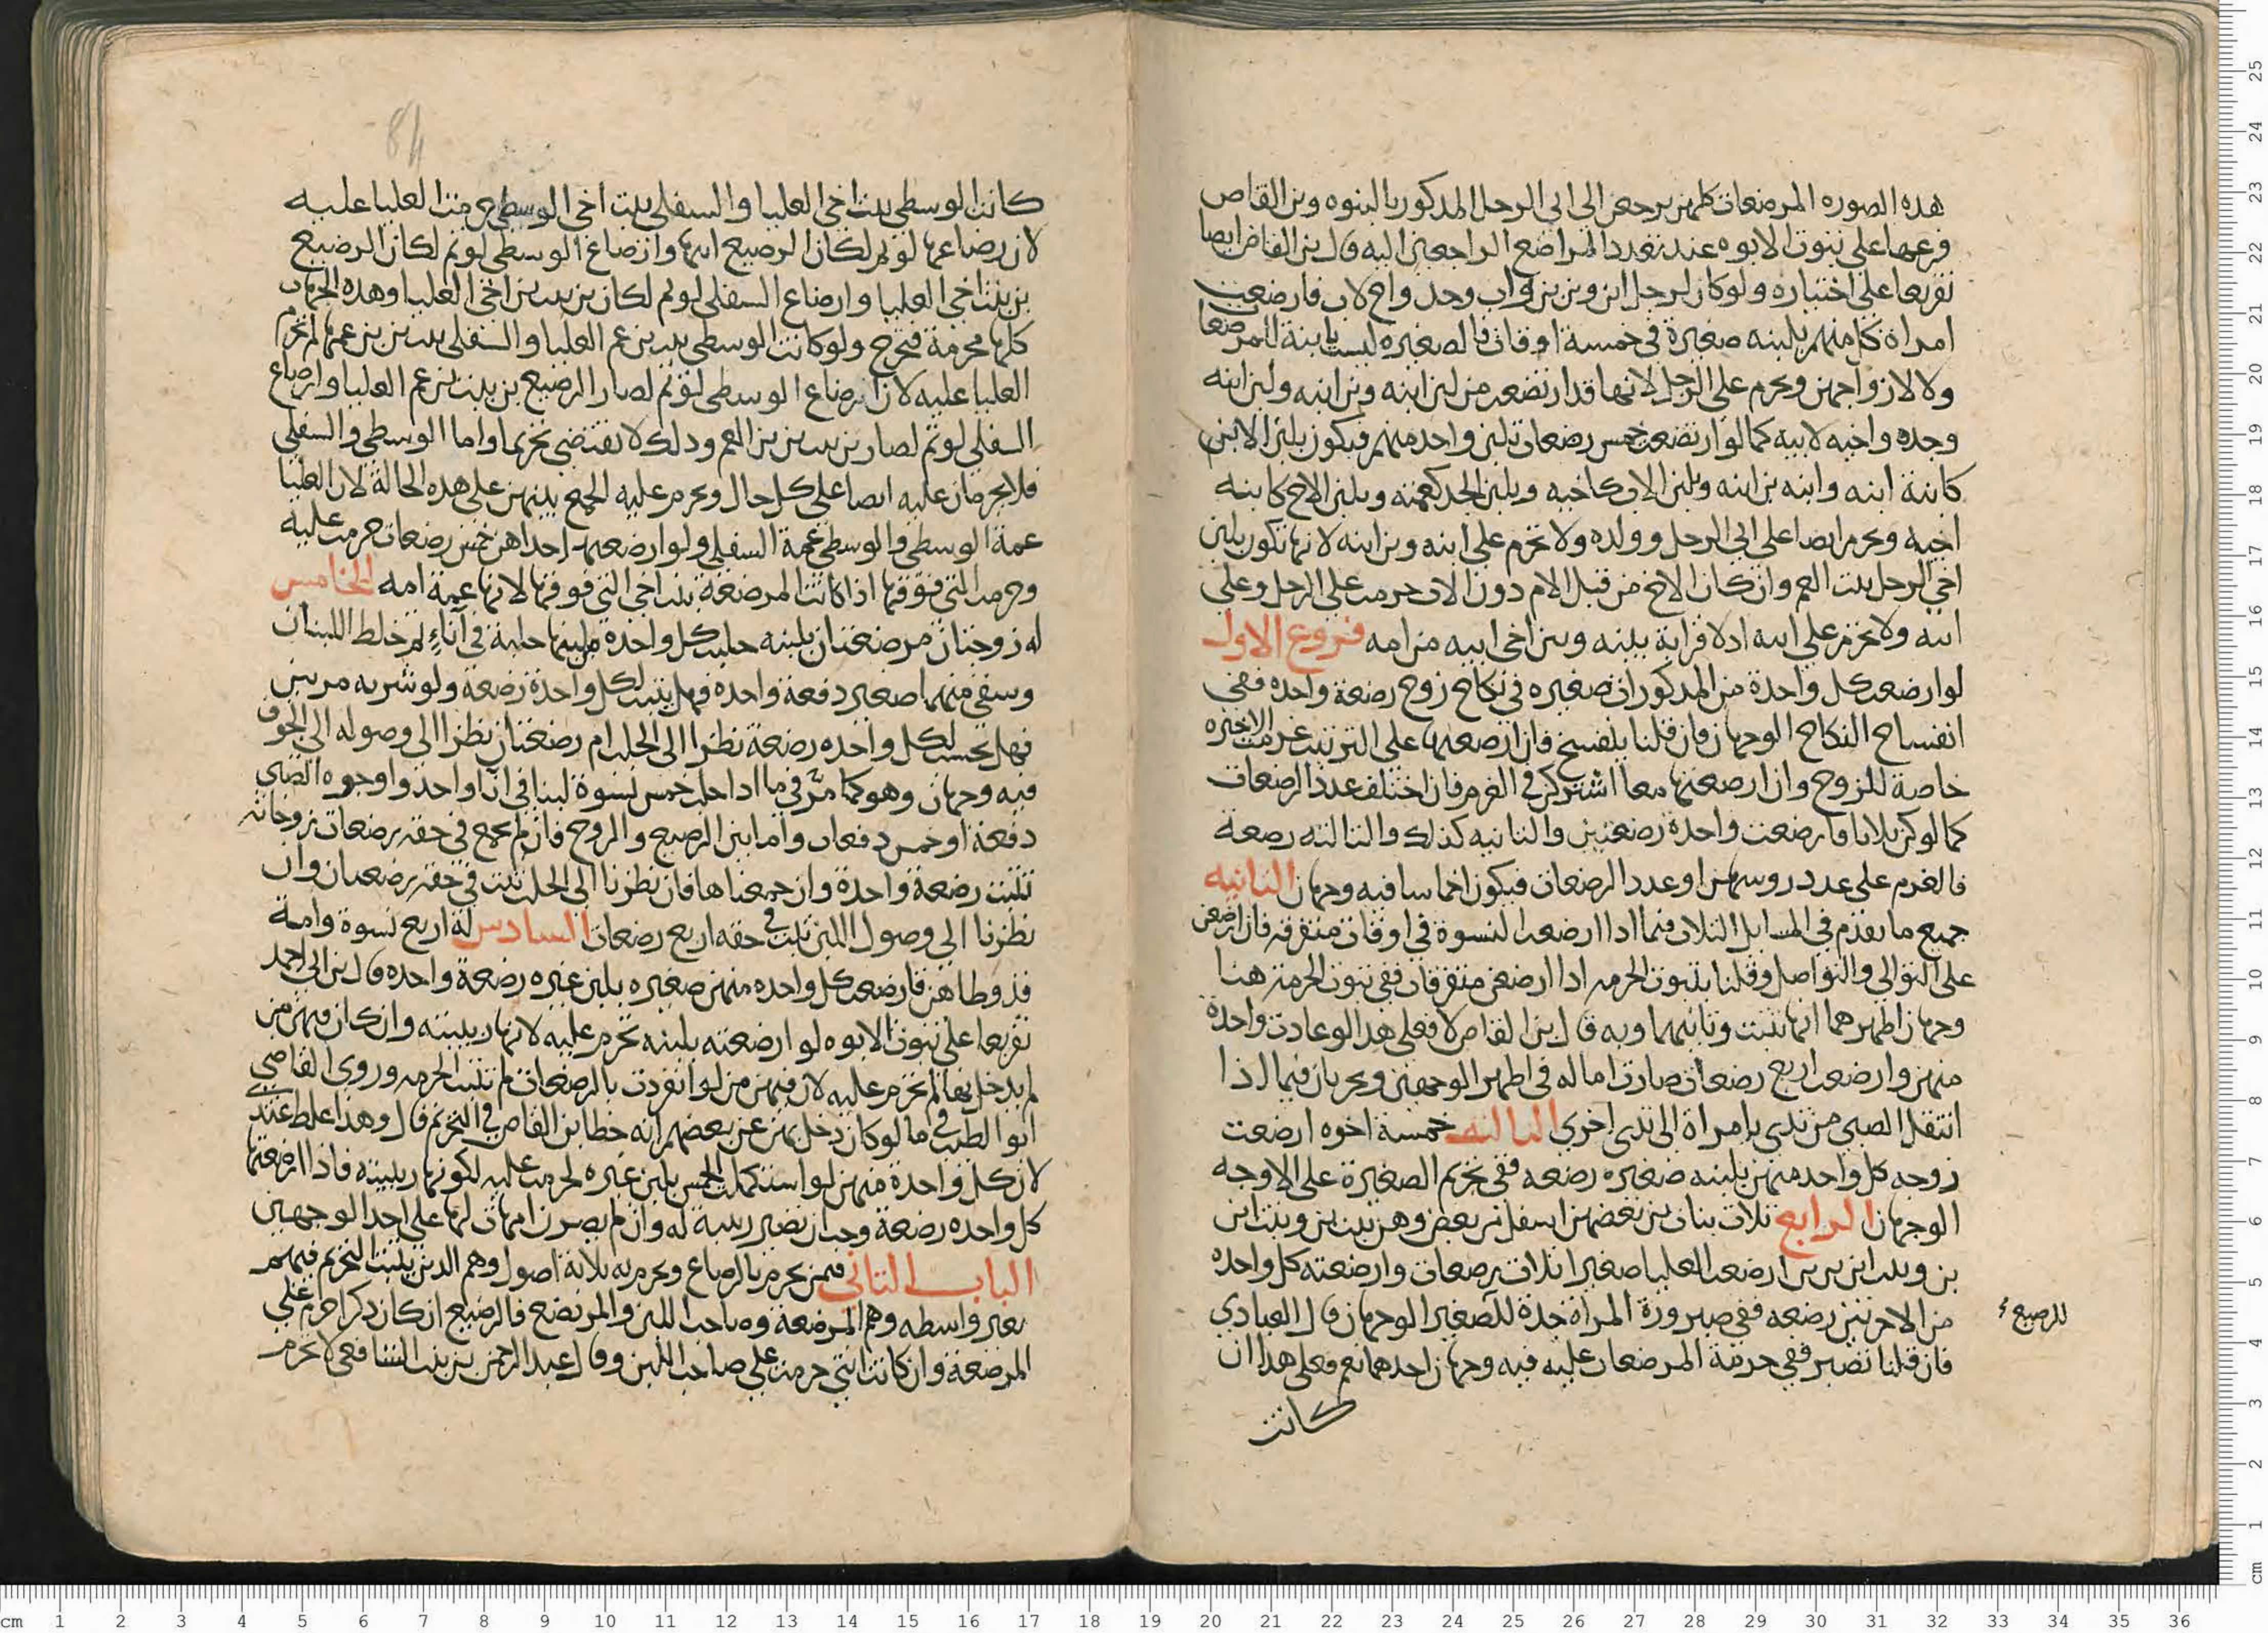 هذه الصوره المرضعات كلهن يرجعن الى ابى الرجل المذكور بالبنوه وبن القاص
فرعها على ثبوت الابوه عند تعدد المراضع الراجعين اليه قال بن القاص ايضا
تفريعا على اختياره ولو كان لرجل ابن وبن بن واب وجد واخ لاب فارضعت
امراة كل منهم بلبنه صغيرة فى خمسة اوقات فالصغيره ليست بابنة للمرضعات
ولا لازواجهن ويحرم على الرجل لانها قد ارتضعت من لبن ابنه وبن ابنه ولبن ابيه
وجده واخيه لابيه كما لو ارتضعت خمس رضعات بلبن واحد منهم فيكون بلبن الابن
كابنة ابنه وابنه بن ابنه وبلبن الاب كاخيه وبلبن الجد كعمته وبلبن الاخ كابنه
اخيه ويحرم ايضا على ابى الرجل وولده ولا تحرم على ابنه وبن ابنه لانها تكون بلبن
اخى الرجل بنت العم وان كان الاخ من قبل الام دون الاب حرمت على الرجل وعلى
ابنه ولا تحرم على ابيه اذ لا قرابة بينه وبين اخى ابيه من امه فروع الاول
لو ارضعت كل واحدة من المذكورات صغيره فى نكاح زوج رضعة واحده ففى
انفساخ النكاح الوجهان فان قلنا ينفسخ فان ارضعنها على الترتيب غرمت الاخيره
خاصة للزوج وان ارضعنها معا اشتركن فى الغرم فان اختلف عدد الرضعات
كما لو كن ثلاثا فارضعت واحدة رضعتين والثانيه كذلك والثالثه رضعة
فالغرم على عدد روسهن او عدد الرضعات فيكون اخماسا فيه وجهان الثانيه
جميع ما تقدم فى المسايل الثلاث فيما اذا ارضعت النسوة فى اوقات متفرقه فان ارضعن
على التوالى والتواصل وقلنا بثبوت الحرمه اذا ارضعن متفرقات ففى ثبوت الحرمة هنا
وجهان اظهرهما انها تثبت وثانيهما وبه قال بن القاص لا فعلى هذا لو عادت واحدة
منهن وارضعت اربع رضعات صارت اما له فى اظهر الوجهين ويجريان فيما اذا
انتقل الصبى من ثدى امراة الى ثدى اخرى الثالثه خمسة اخوه ارضعت
زوجه كل واحد منهن بلبنه صغيره رضعه ففى تحريم الصغيرة على الاوجه
الوجهان الرابع ثلاث بنات بن بعضهن اسفل من بعض وهن بنت بن وبنت ابن
بن وبنت ابن بن بن ارضعت العليا صغيرا ثلاث رضعات وارضعته كل واحده
من الاخرتين رضعه ففى صيرورة المراة جدة للصغير الوجهان قال العبادي
للرضيع
فان قلنا تصير ففى حرمة المرضعات عليه فيه وجهان احدهما نعم فعلى هذا ان
كانت
84
كانت الوسطى بنت اخى العليا والسفلى بنت اخى الوسطى حرمت العليا عليه
لان رضاعها لو تم لكان الرضيع ابنها وارضاع الوسطى لو تم لكان الرضيع
بن بنت اخى العليا وارضاع السفلى لو تم لكان بن بنت بن اخى العليا وهذه الجهات
كلها محرمة فتحرم ولو كانت الوسطى بنت بن عم العليا والسفلى بنت بن بن عمها لم تحرم
العليا عليه لان ارضاع الوسطى لو تم لصار الرضيع بن بنت بن عم العليا وارضاع
السفلى لو تم لصار بن بنت بن بن العم وذلك لا يقتضى تحريما واما الوسطى والسفلى
فلا يحرمان عليه ايضا على كل حال ويحرم عليه الجمع بينهن على هذه الحالة لان العليا
عمة الوسطى والوسطى عمة السفلى ولو ارضعته احداهن خمس رضعات حرمت عليه
وحرمت التى فوقها اذا كانت المرضعة بنت اخى التى فوقها لانها عمة امه الخامس
له زوجتان مرضعتان بلبنه حلبت كل واحدة من لبنها حلبة فى آناءٍ ثم خلط اللبنان
وسقى منهما صغير دفعة واحده فهل يثبت لكل واحدة رضعة ولو شربه مرتين
فهل تحسب لكل واحده رضعة نظرا الى الحلب ام رضعتان نظرا الى وصوله الى الجوف
فيه وجهان وهو كما مر فى ما اذا حلب خمس نسوة لبنا فى اناء واحد واوجروه الصبى
دفعة او خمس دفعات واما ابن الرضيع والزوج فان لم يجمع فى حقه رضعات زوجاته
تثبت رضعة واحدة وان جمعناها فان نظرنا الى الحلب تثبت فى حقه رضعتان وان
نظرنا الى وصول اللبن ثبت فى حقه اربع رضعات السادس له اربع نسوة وامة
قد وطاهن فارضعت كل واحده منهن صغيره بلبن غيره رضعة واحده قال بن ابى احمد
تفريعا على ثبوت الابوه لو ارضعته بلبنه تحرم عليه لانها ربيبته وان كان فيهن من
لم يدخل بها لم تحرم عليه لان فيهن من لو انفردت بالرضعات لم تثبت الحرمه وروى القاضى
ابوا الطيب فى ما لو كان دخل بهن عن بعضهم انه خطا بن القاص فى التحريم قال وهذا غلط عندى
لان كل واحدة منهن لو استكملت الخمس بلبن غيره لحرمت عليه لكونها ربيبته فاذا ارضعتها
كل واحده رضعة وجب ان تصير ربيبة له وان لم يصرن امهات لها على احد الوجهين
الباب الثانى فيمن يحرم بالرضاع ويحرم به ثلاثة اصول وهم الذين يثبت التحريم فيهم
بغير واسطه وهم المرضعة وصاحب اللبن والمرتضع فالرضيع ان كان ذكرا حرم على
المرضعة وان كانت انثى حرمت على صاحب اللبن وقال عبد الرحمن بن بنت الشافعى لا تحرم